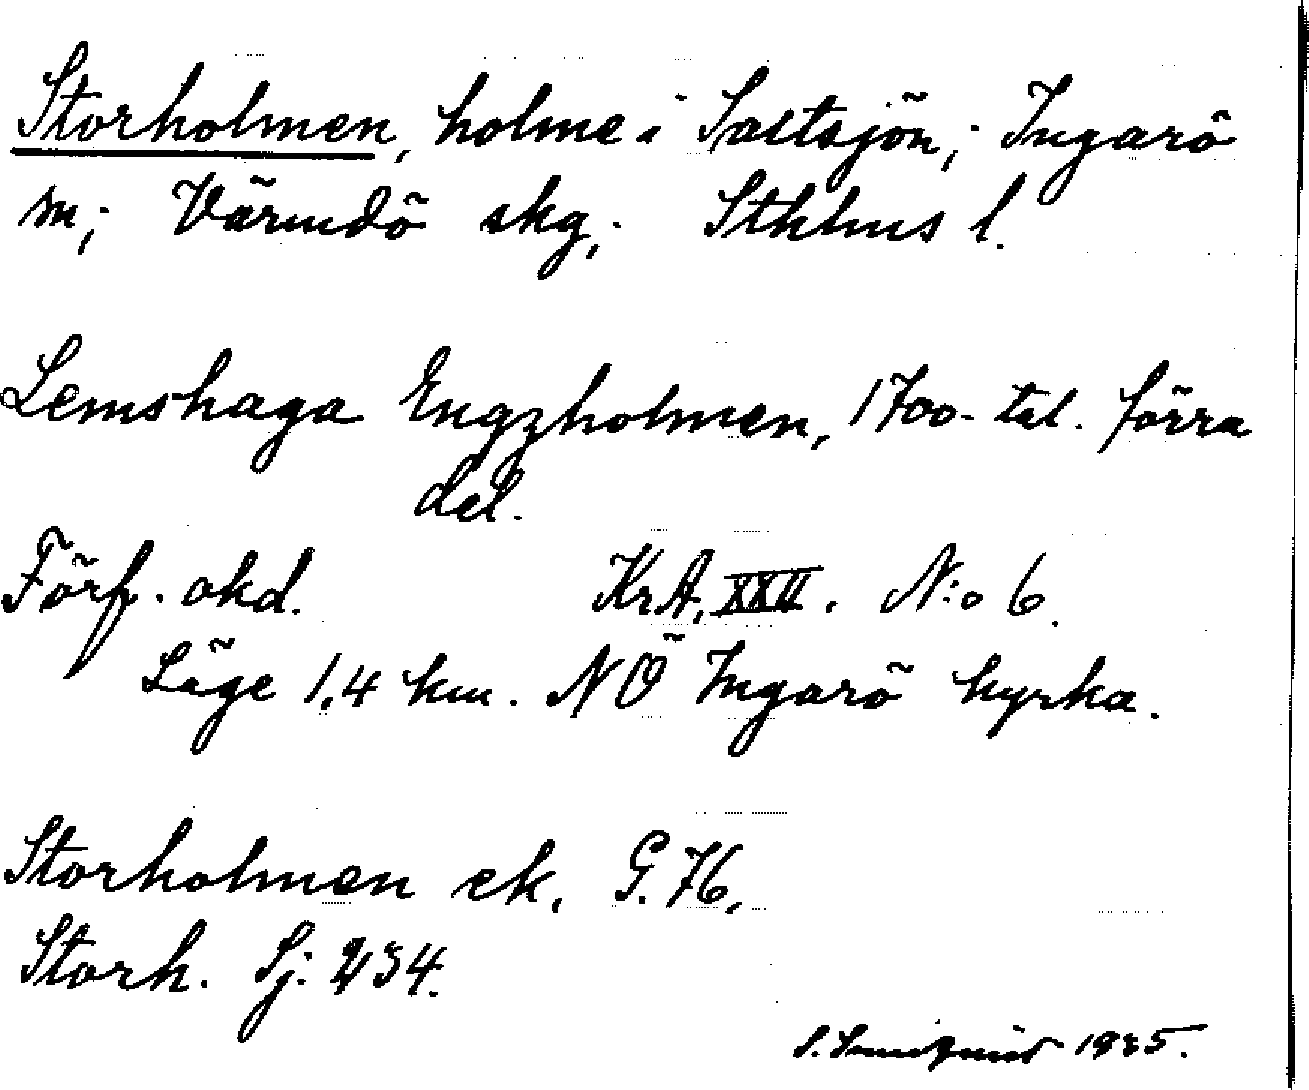 Storholmen, holme i Saltsjön; Ingarö
sn; Värmdö skg; Sthlms l.
Lemshaga Engzholmen, 1700-tal. förra
del.
Förf. okd. KrA, XXII. N:o 6.
Läge 1,4 km. NÖ Ingarö kyrka.
Storholmen ek. G. 76,
Storh. Sj. 234.
1935.